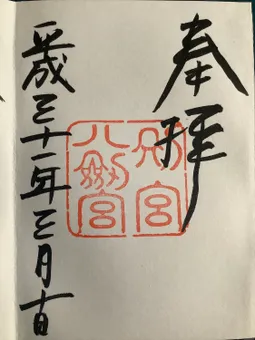 奉拝
別宮
八劔宮
平成三十一年三月十日